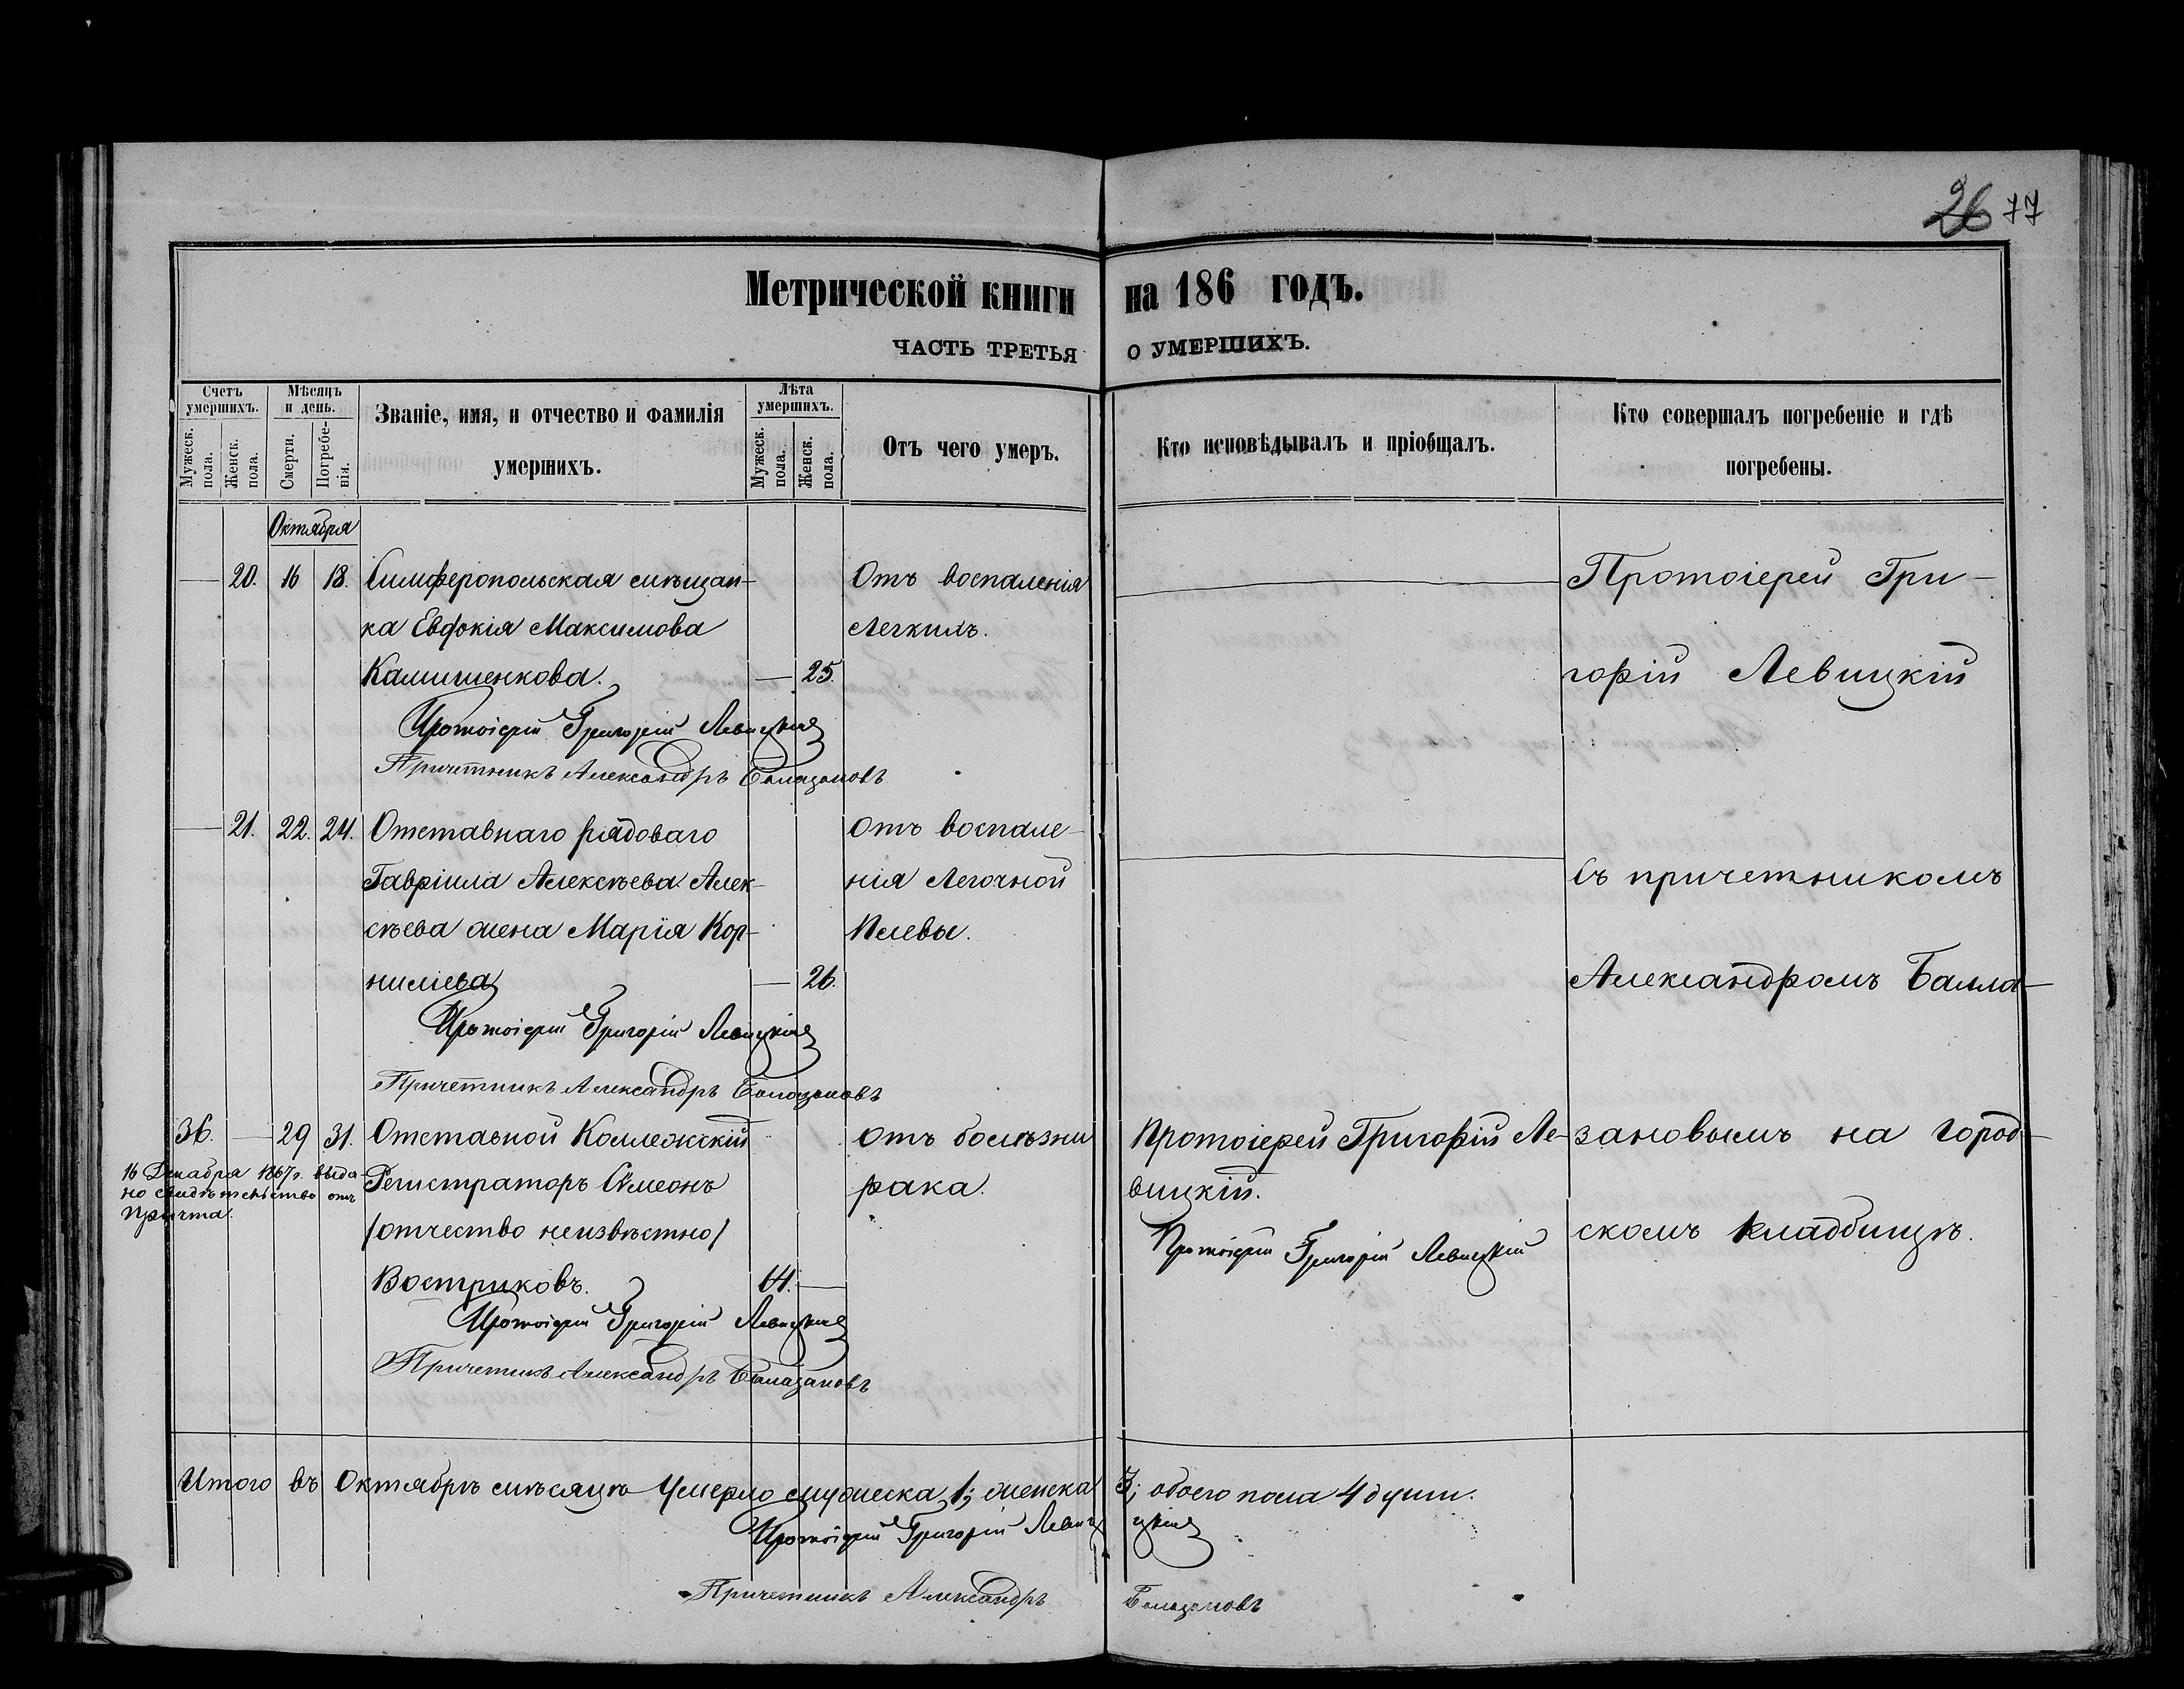 26 77
Метрической книги на 186 годъ.
ЧАСТЬ ТРЕТЬЯ О УМЕРШИХЪ.
Счетъ умершихъ.
Мужеск. пола.
Женск. пола.
Мѣсяцъ и день.
Смерти.
Погребенія.
Званіе, имя, и отчество и фамилія
умершихъ.
Лѣта умершихъ.
Мужеск. пола.
Женск. пола.
Отъ чего умеръ.
Кто исповѣдывалъ и пріобщалъ.
Кто совершалъ погребеніе и гдѣ
погребены.
Октября
— 20. 16 18. Симферопольская мѣщан- Отъ воспаленія
ка Евдокія Максимова легкихъ.
Камышенкова. — 25.
Протоіерей Григорій Левицкій
Причетникъ Александръ Балазановъ
— 21. 22. 24. Отставнаго рядоваго отъ воспале-
Гавріила Алексѣева Алек- нія легочной
сѣева жена Марія Кор- плевы.
ниліева — 26.
Протоіерей Григорій Левицкій
Причетникъ Александръ Балазановъ
36. — 29 31. Отставной Коллежскій отъ болѣзни
Регистраторъ Сѵмеонъ рака.
/отчество неизвѣстно/
Востриковъ. 64. —
Протоіерей Григорій Левицкій
Причетникъ Александръ Балазановъ
16 Декабря 1867г. выда-
но свидѣтельство отъ
причта.
Протоіерей Григорій Ле-
вицкій.
Протоіерей Григорій Левицкій
Протоіерей Гри-
горій Левицкій
Съ причетникомъ
Александромъ Балла-
зановымъ на город-
скомъ кладбищѣ.
Итого въ Октябрѣ мѣсяцѣ умерло мужеска 1; женска 3; обоего пола 4 души.
Протоіерей Григорій Левицкій
Причетникъ Александръ Балазановъ